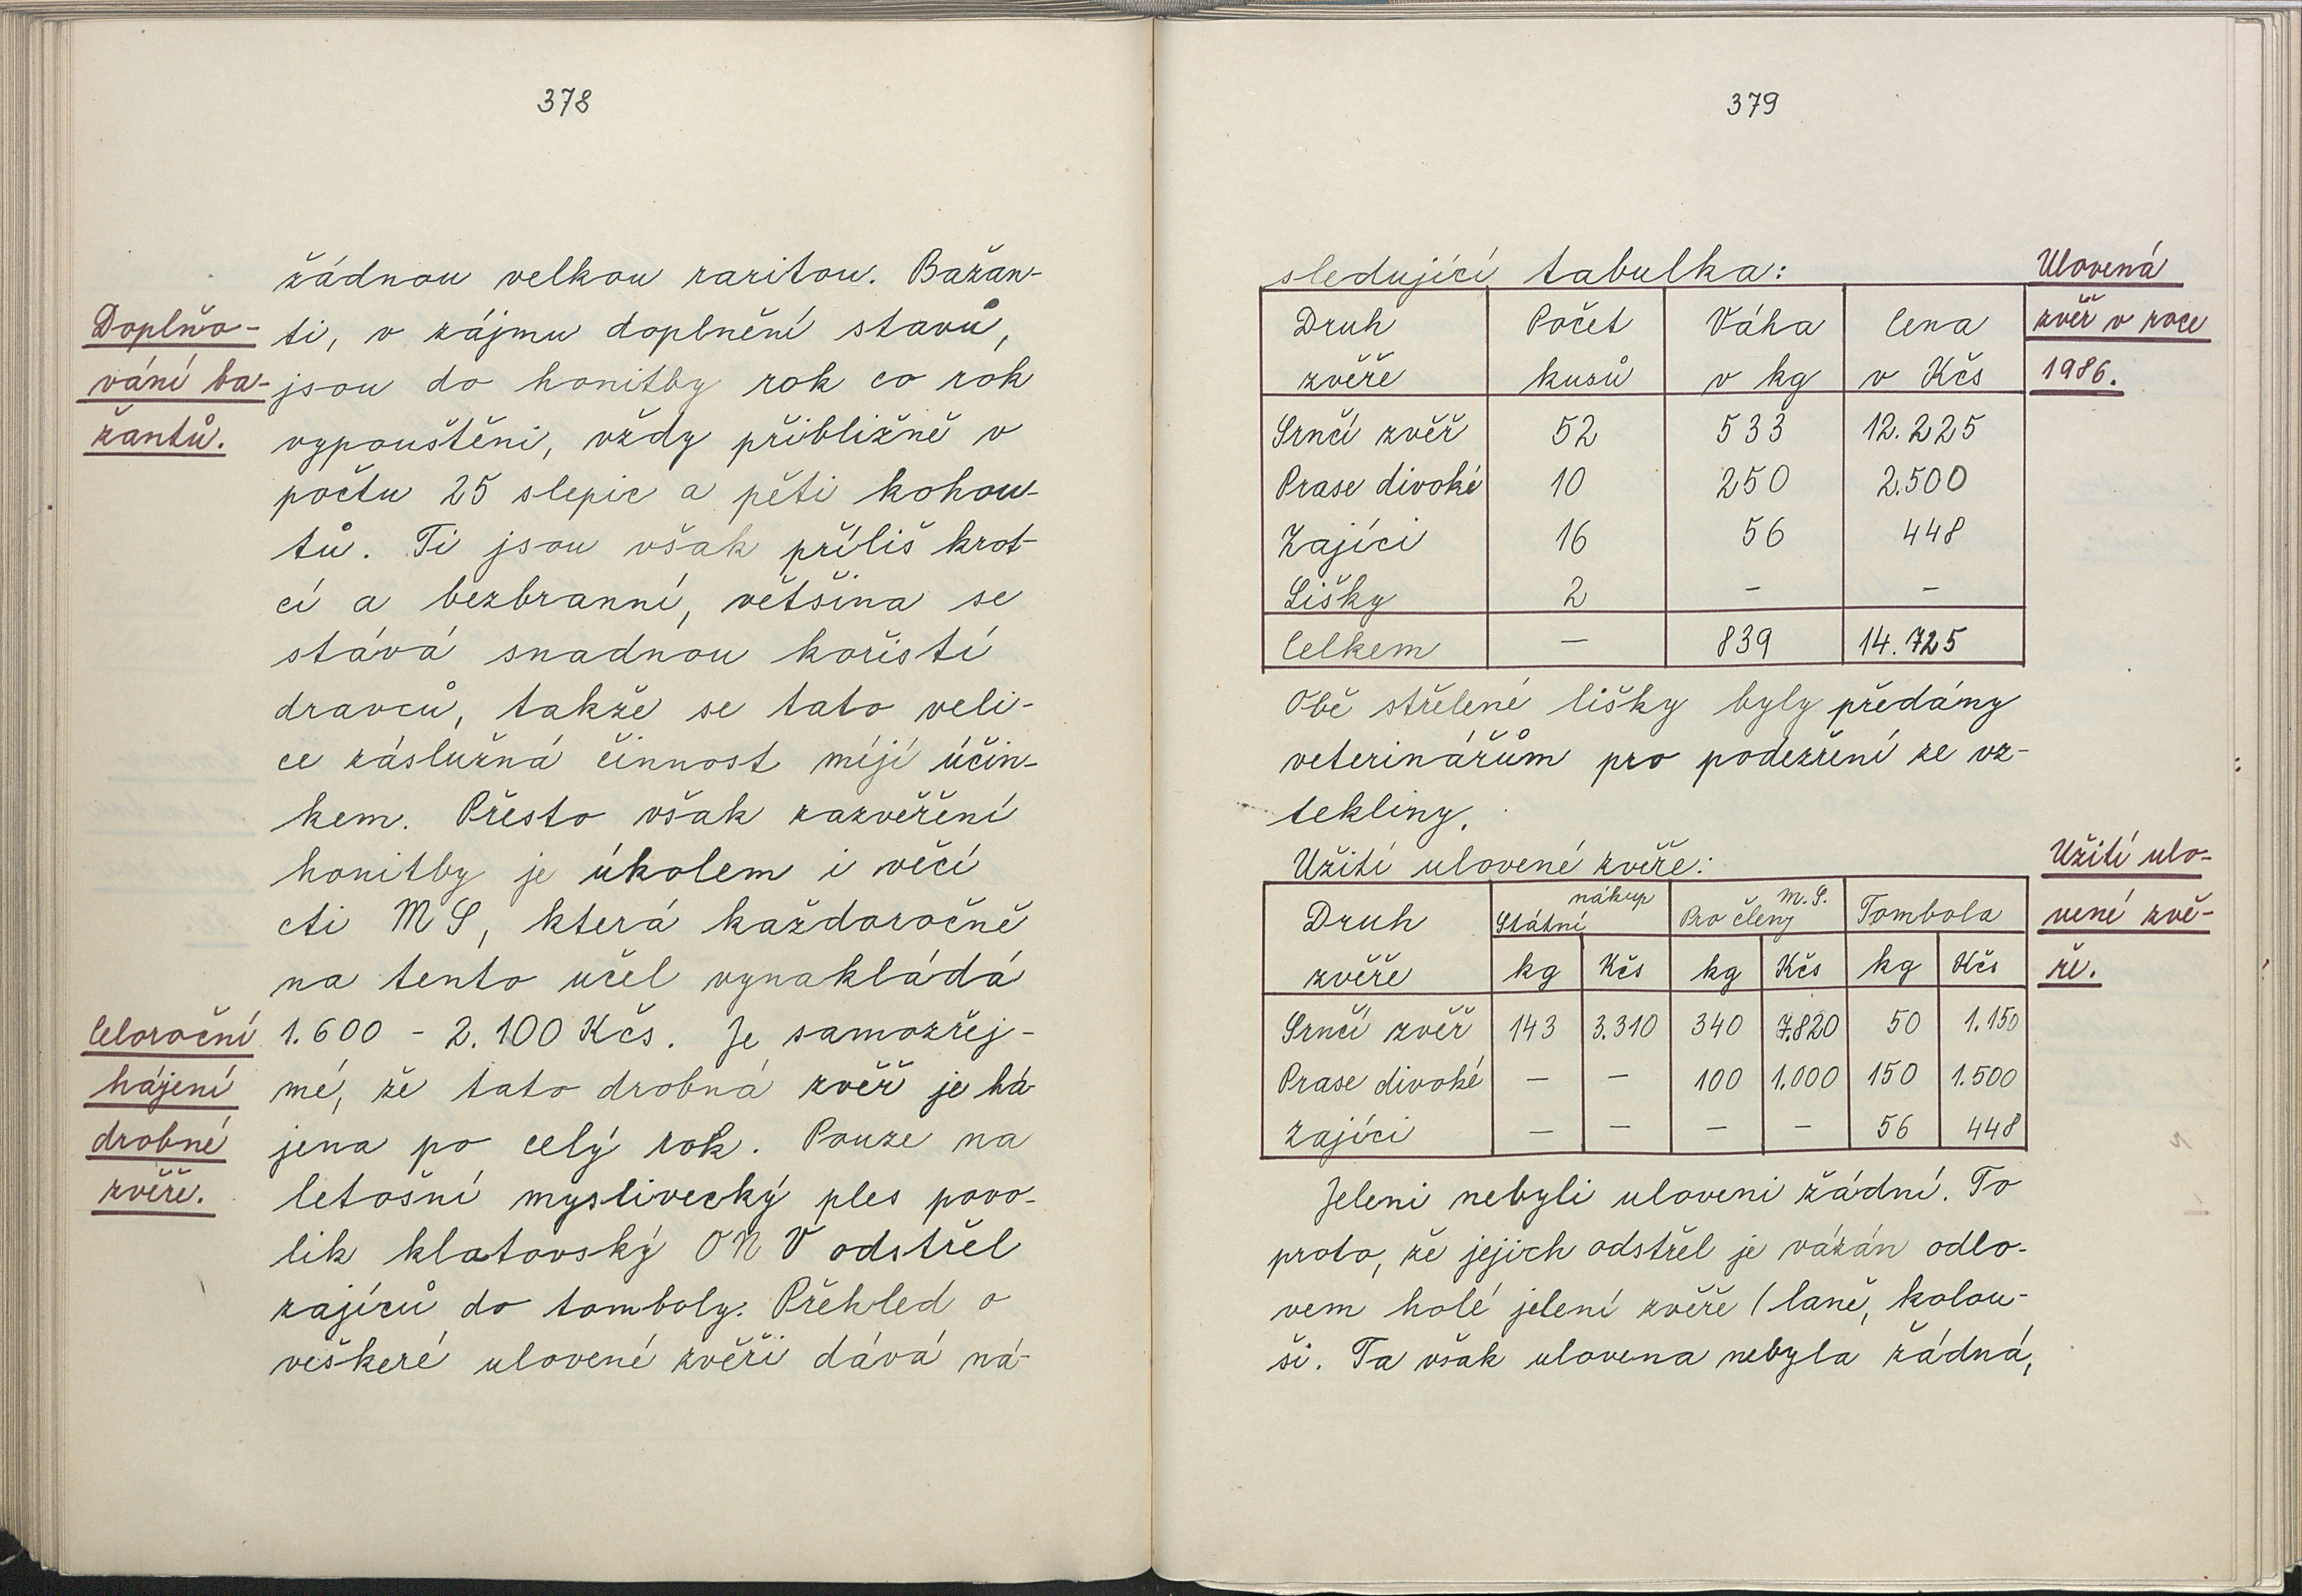 378
žádnou velkou raritou. Bažan-
Doplňo-
ti, v zájmu doplnění stavů,
vání ba-
jsou do honitby rok co rok
žantů.
vypouštěni, vždy přibližně v
počtu 25 slepic a pěti kohou-
tů. Ti jsou však příliš krot-
cí a bezbranní, většina se
stává snadnou kořistí
dravců, takže se tato veli-
ce záslužná činnost míjí účin-
kem. Přesto však zazvěření
honitby je úkolem i věcí
cti MS, která každoročně
na tento účel vynakládá
Celoroční
1.600 - 2.100 Kčs. Je samozřej-
hájení
mé, že tato drobná zvěř je há-
drobné
jena po celý rok. Pouze na
zvěře.
letošní myslivecký ples povo-
lik klatovský ONV odstřel
zajíců do tomboly. Přehled o
veškeré ulovené zvěři dává ná-
379
sledující tabulka:
Ulovená
zvěř v roce
1986.
Druh Počet Váha Cena
zvěře kusů v kg v Kčs
Srnčí zvěř 52 533 12.225
Prase divoké 10 250 2.500
Zajíci 16 56 448
Lišky 2 - -
Celkem - 839 14.725
Obě střelené lišky byly předány
veterinářům pro podezření ze vz-
tekliny.
Užití ulovené zvěře:
Užití ulo-
vené zvě-
ře.
Druh Státní nákup Pro členy M.S. Tombola
zvěře kg Kčs kg Kčs kg Kčs
Srnčí zvěř 143 3.310 340 7.820 50 1.150
Prase divoké - - 100 1.000 150 1.500
Zajíci - - - - 56 448
Jeleni nebyli uloveni žádní. To
proto, že jejich odstřel je vázán odlo-
vem holé jelení zvěře (laně, kolou-
ši. Ta však ulovena nebyla žádná,